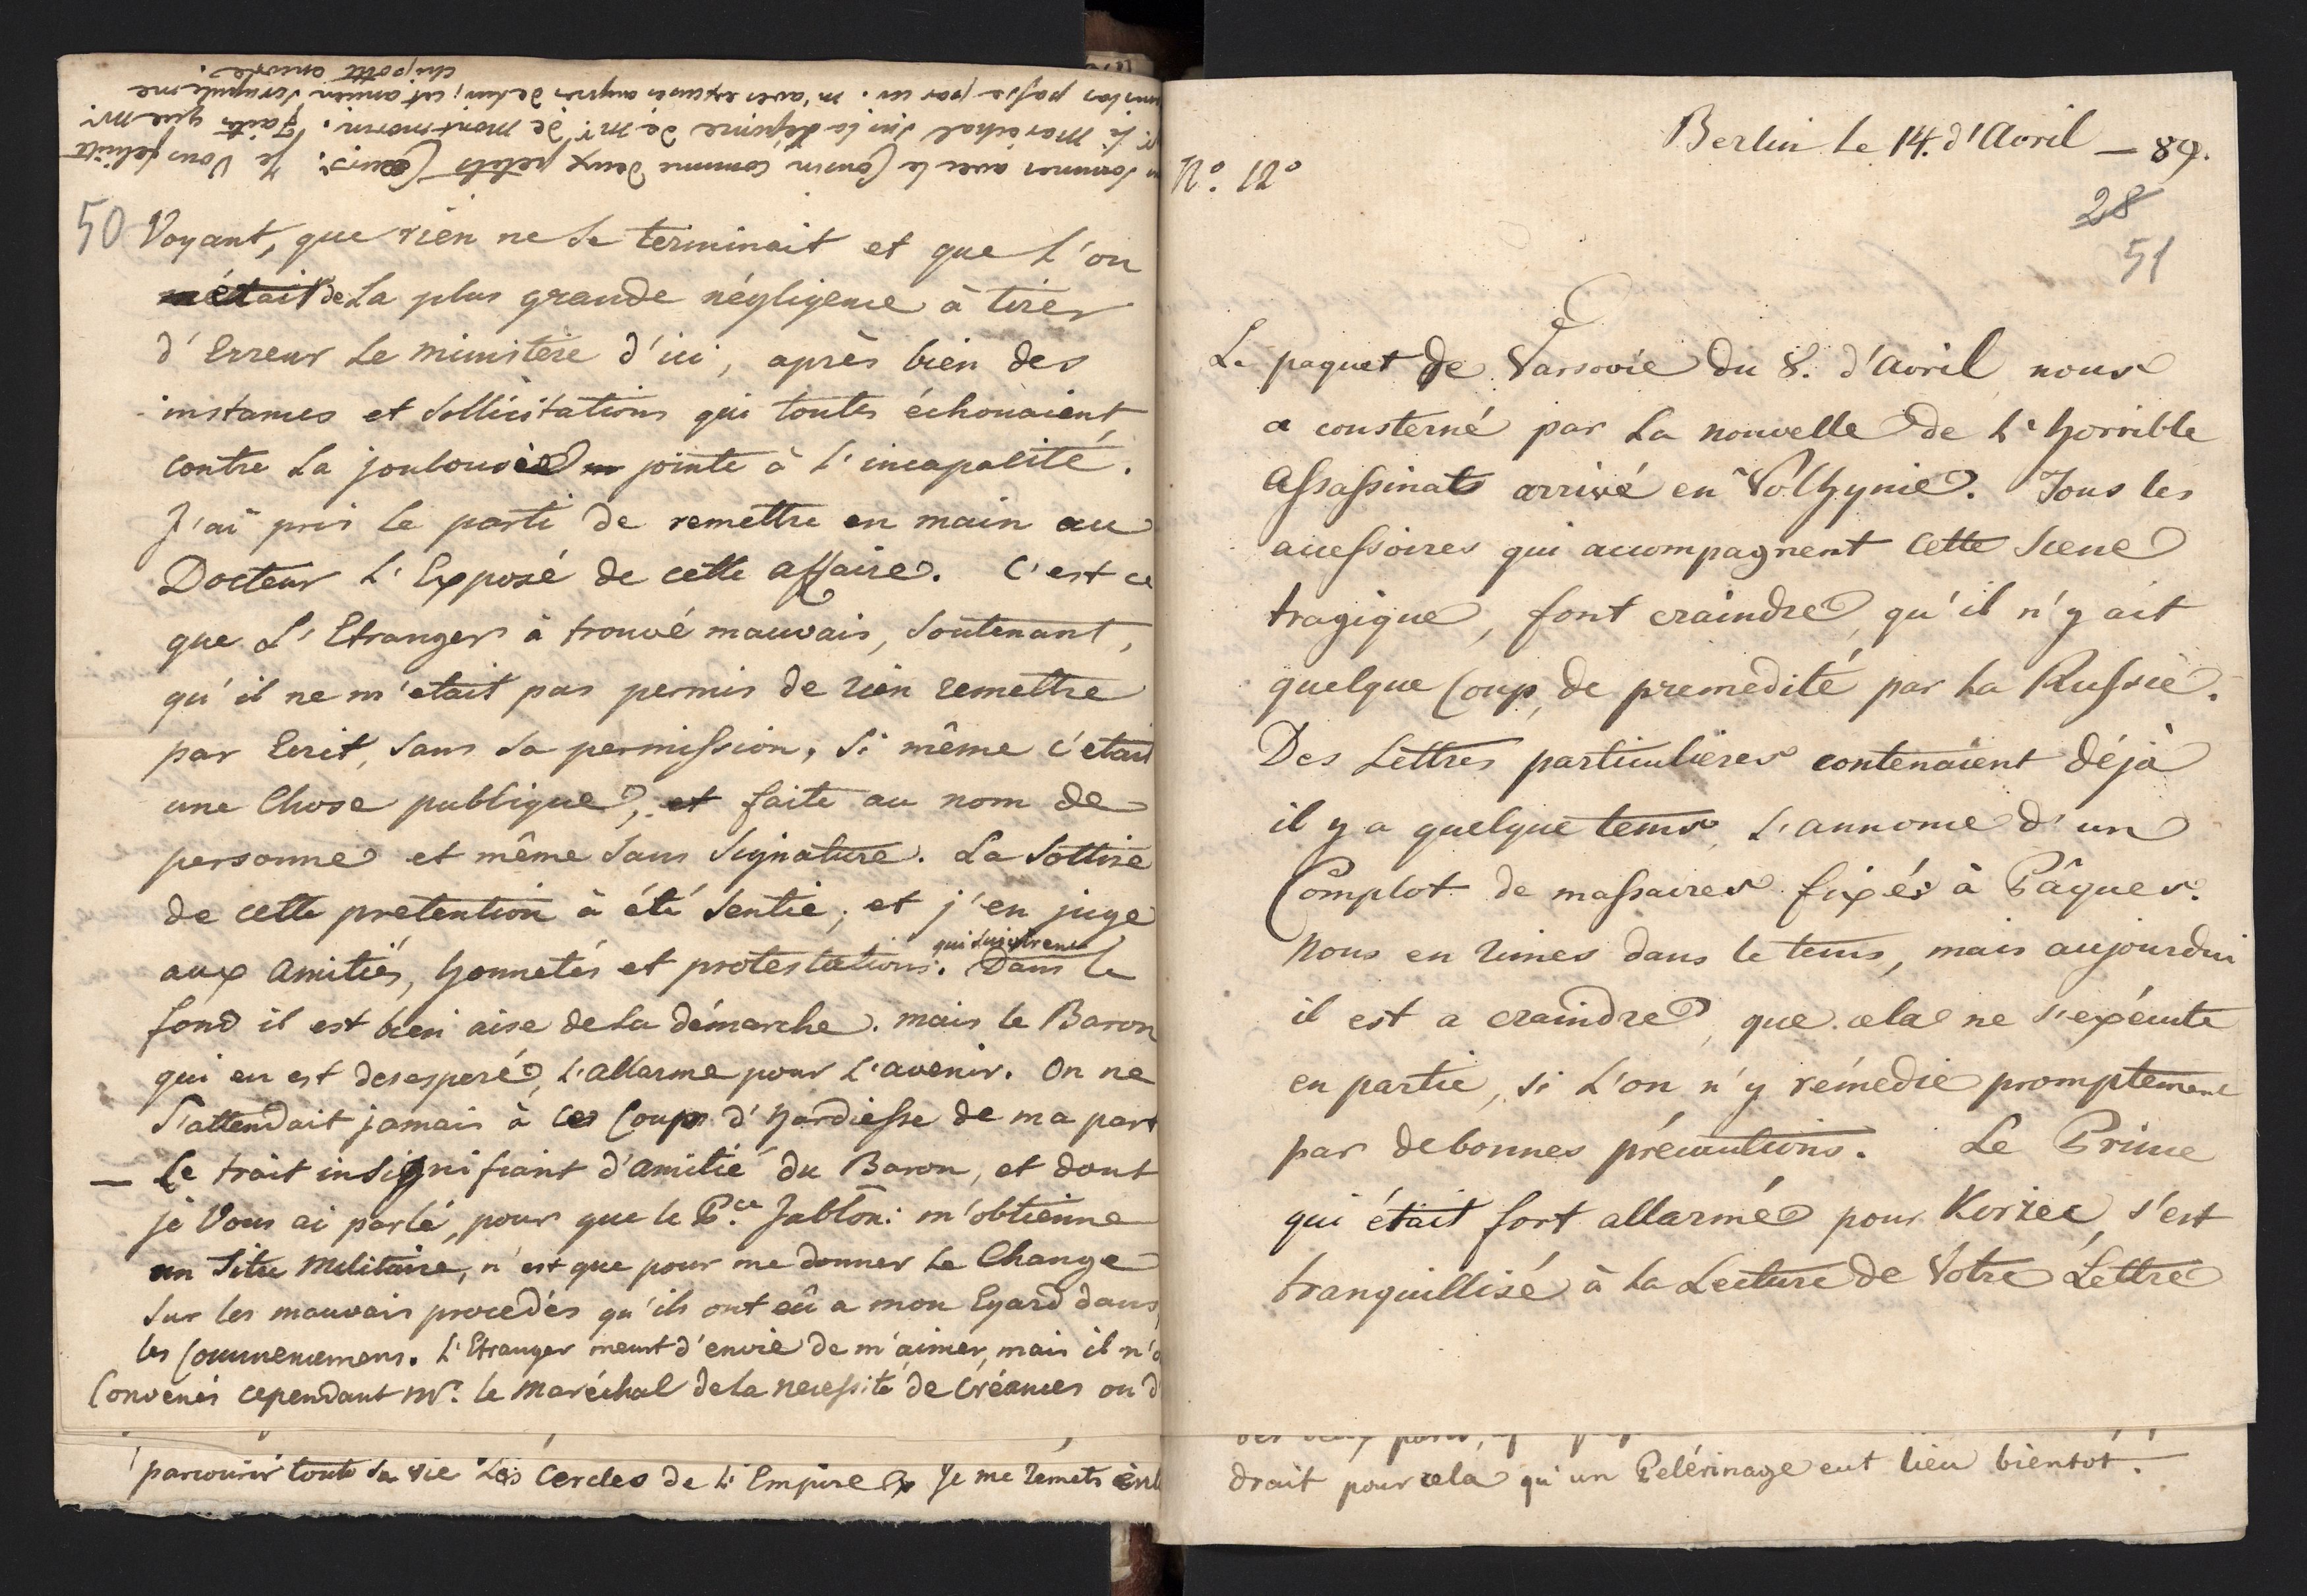 sommes avec le Cousin comme deux petits Coeurs. Je Vous felicite
Mr. le Maréchal sur la dépime de Mr. de Montmorin. Faites que Mr.
passe par ici. m'avés excusés auprès de lui; cet ancien scrupule me
chipotte encore.
50
Voyant, que rien ne se terminait et que l'on
métait de la plus grande négligence à tirer
d'Erreur le ministère d'ici, après bien des
instances et sollicitations qui toutes échouaient
contre la joulousie jointe à l'incapacité.
J'ai pris le parti de remettre en main au
Docteur l'Exposé de cette affaire. C'est ce
que L'Etranger à trouvé mauvais, soutenant,
qu'il ne m'etait pas permis de rien remettre
par Ecrit, sans sa permission, si même c'etait
une Chose publique, et faite au nom de
personne et même sans signature. La sottise
de cette pretention à été sentie; et j'en juge
aux amitiés, honnetés et protestations qui suivirent. Dans le
fond il est bien aise de la démarche. mais le Baron
qui en est desesperé, l'allarme pour l'avenir. On ne
s'attendait jamais à ces Coups d'hardiesse de ma part
— Le trait insignifiant d'amitié du Baron, et dont
je Vous ai parlé, pour que le P.ce Jablon: m'obtienne
un Titre Militaire, n'est que pour me donner le Change
sur les mauvais procedés qu'ils ont eû a mon Egard dans
les Commencemens. L'Etranger meurt d'envie de m'aimer, mais il n'o
Convenés cependant Mr. le Maréchal de la necessité de Créances ou d
parcourir toute sa vie Les Cercles de L'Empire Je me remets
Berlin le 14. d'Avril — 89.
No. 12o
28
51
Le paquet de Varsovie du 8. d'Avril nous
a consterné par la nouvelle de L'horrible
Assassinats arrivé en Volhynie. Tous les
accessoires qui accompagnent cette Scene
tragique, font craindre, qu'il n'y ait
quelque Coup, de premedité par la Russie.
Des Lettres particulières contenaient déjà
il y a quelque tems, l'annonce d'un
Complot de massacres fixés à Pâques.
Nous en rimes dans le tems, mais aujourdui
il est a craindre, que cela ne s'exécute
en partie, si l'on n'y rémedie promptement
par de bonnes précautions. Le Prince
qui était fort allarmé pour Korzec, s'est
tranquillisé à la Lecture de Votre Lettre
drait pour cela qu'un Pelérinage eut lieu bientot. —